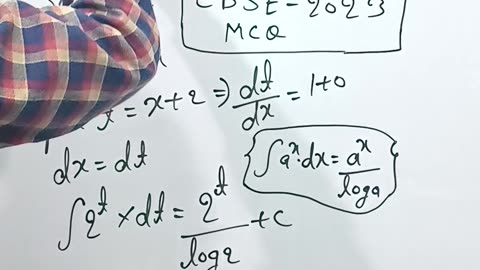 CBSE - 2023
MCQ
t = x+2 ⇒ dt/dx = 1+0
dx = dt
∫a^x·dx = a^x/loga
∫2^t × dt = 2^t/log2 + c